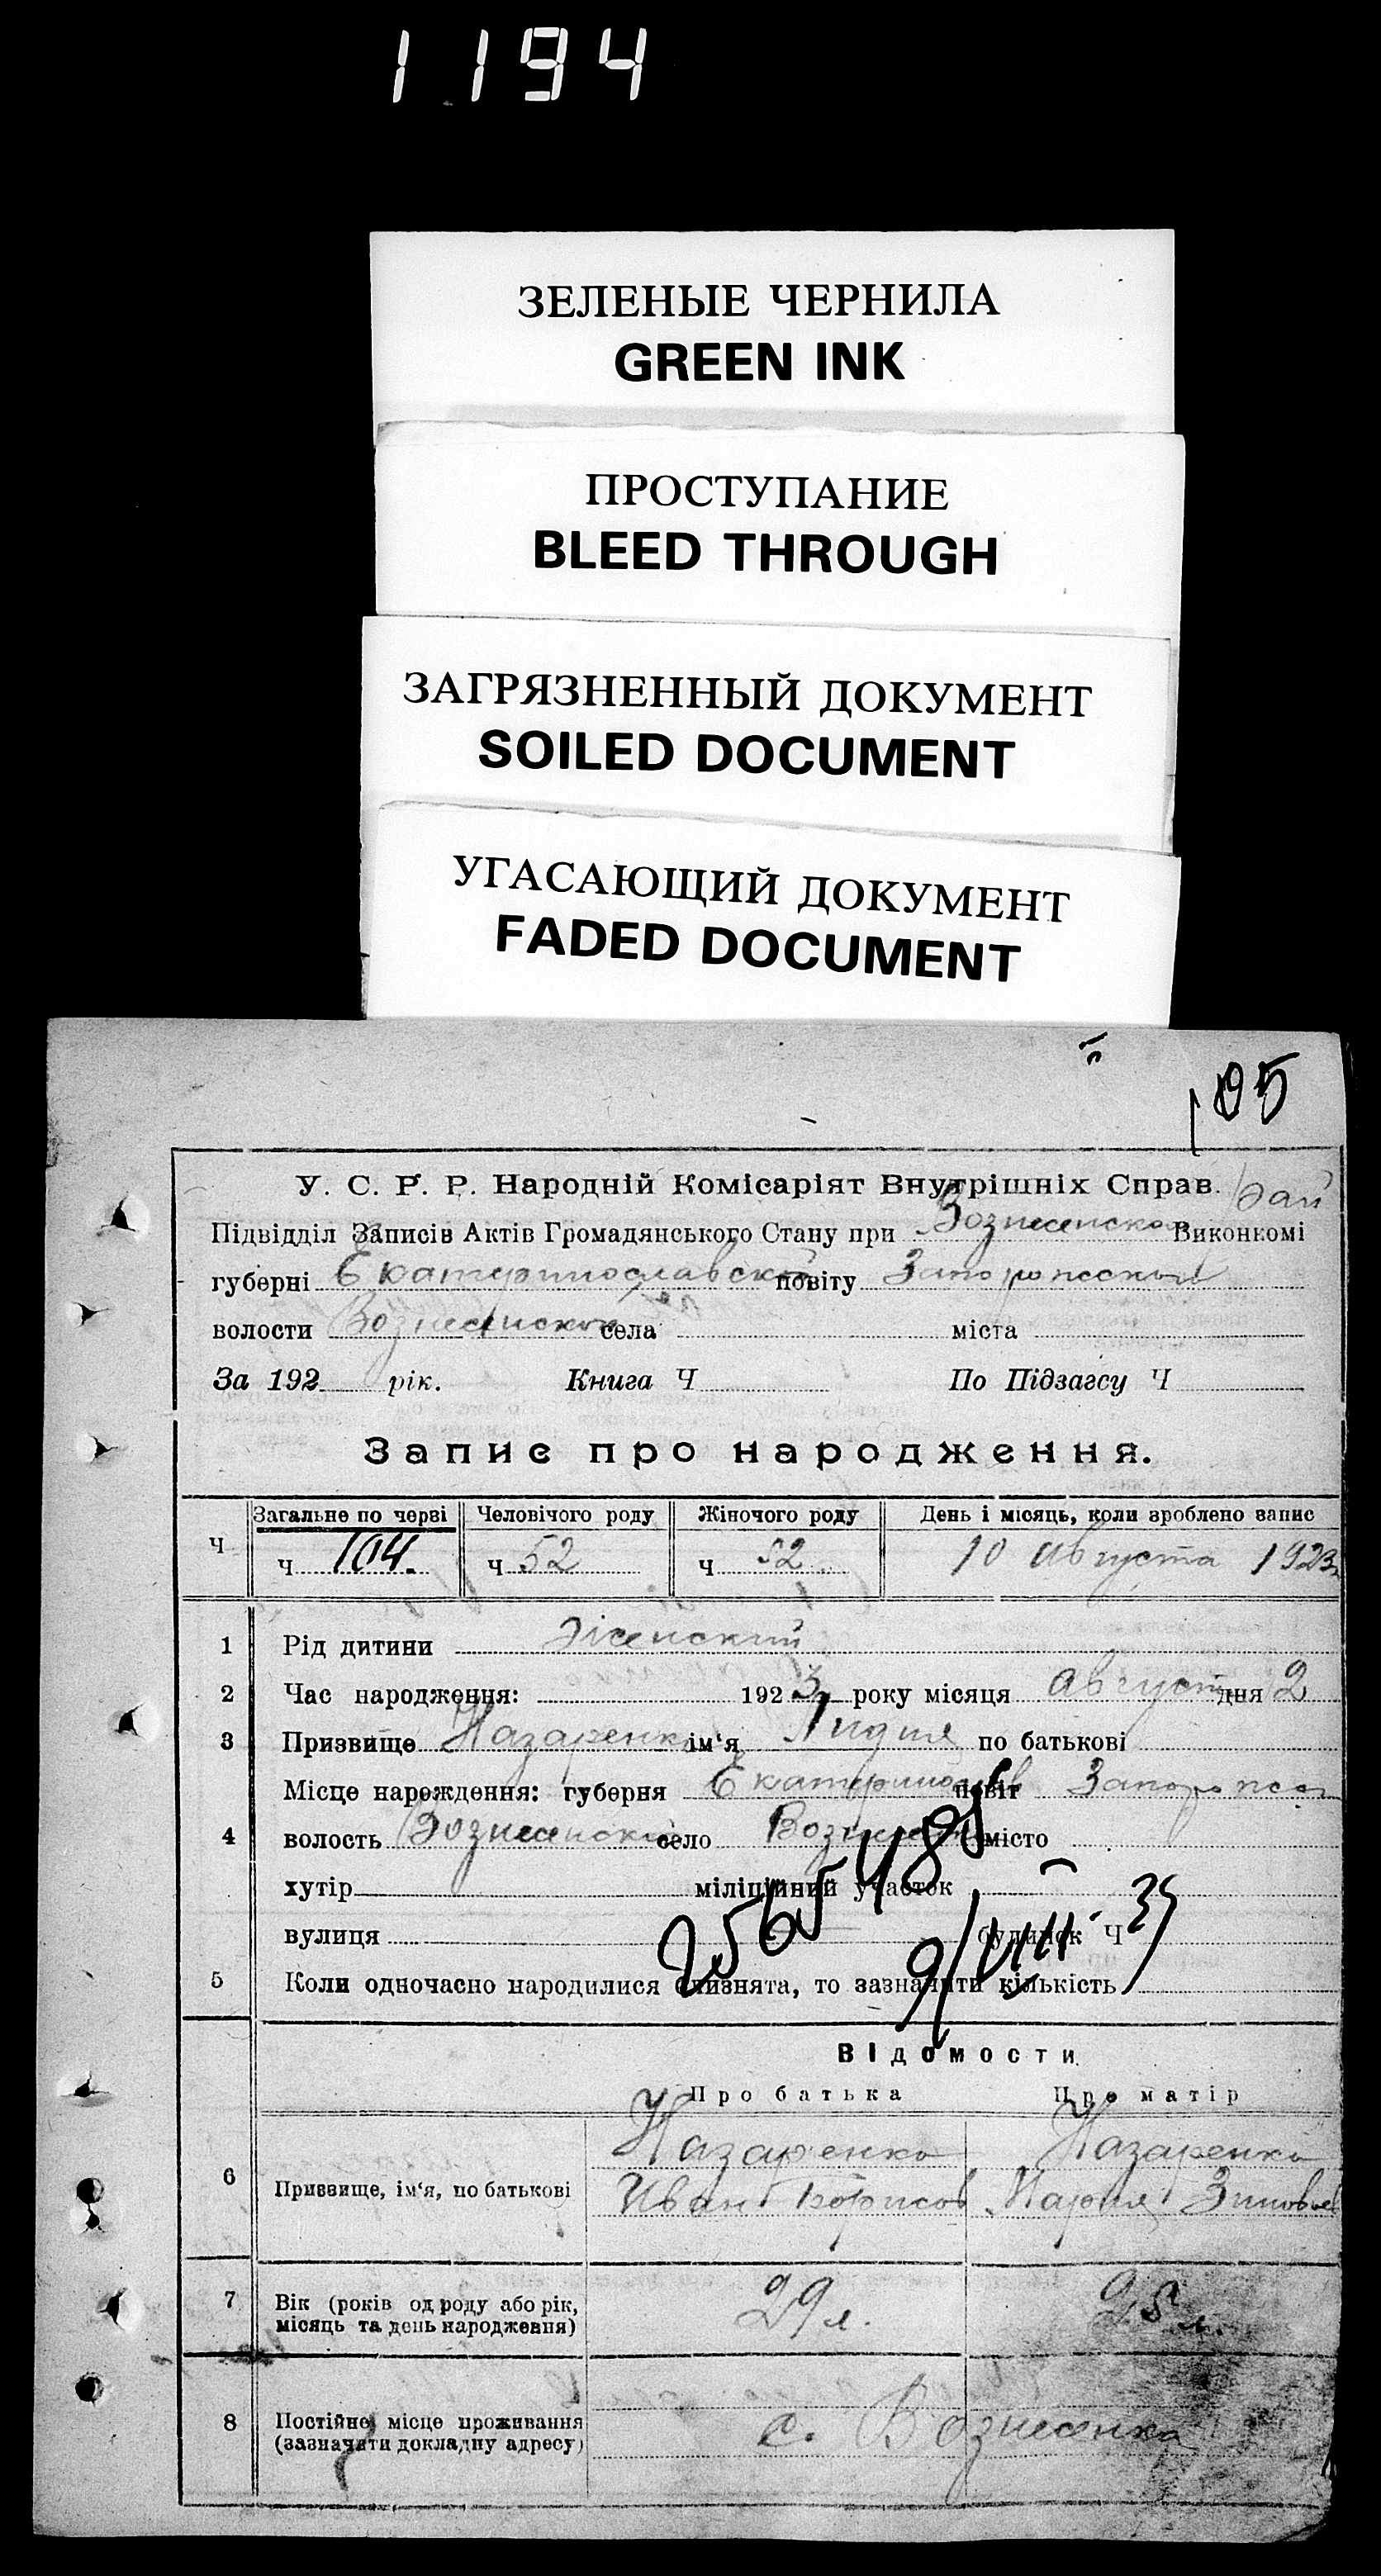 1194
ЗЕЛЕНЫЕ ЧЕРНИЛА
GREEN INK
ПРОСТУПАНИЕ
BLEED THROUGH
ЗАГРЯЗНЕННЫЙ ДОКУМЕНТ
SOILED DOCUMENT
УГАСАЮЩИЙ ДОКУМЕНТ
FADED DOCUMENT
105
У. С. Р. Р. Народній Комісаріят Внутрішніх Справ.
Підвідділ Записів Актів Громадянського Стану при Вознесенском Виконкомі
губерні Екатеринославской повіту Запорожский
волости Вознесенской села міста
За 192 рік. Книга Ч По Підзагсу Ч
Запис про народження.
Загальне по черві Человічого роду Жіночого роду День і місяць, коли зроблено запис
Ч Ч 104. Ч 52 Ч 52 10 августа 1923
1 Рід дитини Женский
2 Час народження: 1923 року місяця август дня 2
3 Призвище Назаренко ім'я Лидия по батькові
Місце нарождення: губерня Екатеринослав повіт Запорож
4 волость Вознесенской село Вознесен місто
хутір міліційний участок
2565485
вулиця будинок Ч
9/VIII 35
5 Коли одночасно народилися близнята, то зазначити кількість
Відомости
Про батька Про матір
Назаренко Назаренко
6 Призвище, ім'я, по батькові Иван Борисов Мария Зиновьев
7 Вік (років од роду або рік, місяць та день народження) 29 л. 25 л.
8 Постійне місце проживання (зазначити докладну адресу) с. Вознесенка